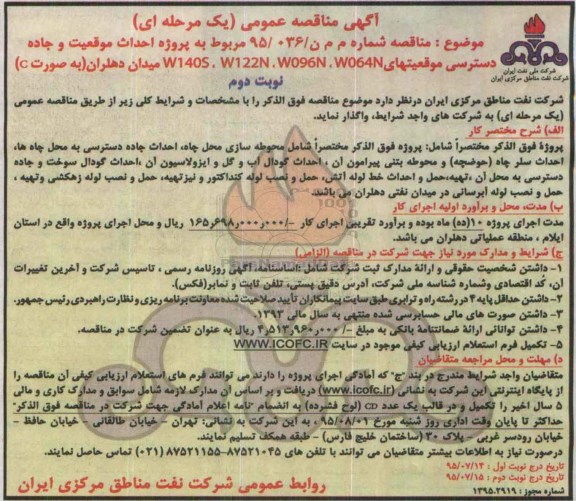 آگهی مناقصه عمومی (یک مرحله ای)
موضوع : مناقصه شماره م م ن/۰۳۶ /۹۵ مربوط به پروژه احداث موقعیت و جاده
دسترسی موقعیتهای W140S ، W122N ، W096N ، W064N میدان دهلران(به صورت C)
نوبت دوم
شرکت ملی نفت ایران
شرکت نفت مناطق مرکزی ایران
شرکت نفت مناطق مرکزی ایران درنظر دارد موضوع مناقصه فوق الذکر را با مشخصات و شرایط کلی زیر از طریق مناقصه عمومی
(یک مرحله ای) به شرکت های واجد شرایط، واگذار نماید.
الف) شرح مختصر کار
پروژه فوق الذکر مختصراً شامل: پروژه فوق الذکر مختصراً شامل محوطه سازی محل چاه، احداث جاده دسترسی به محل چاه ها،
احداث سلر چاه (حوضچه) و محوطه بتنی پیرامون آن ، احداث گودال آب و گل و ایزولاسیون آن ،احداث گودال سوخت و جاده
دسترسی به محل آن ،تهیه،حمل و احداث خط لوله آتش، حمل و نصب لوله کنداکتور و نیزتهیه، حمل و نصب لوله زهکشی وتهیه ،
حمل و نصب لوله آبرسانی در میدان نفتی دهلران می باشد.
ب) مدت، محل و برآورد اولیه اجرای کار
مدت اجرای پروژه ۱۰(ده) ماه بوده و برآورد تقریبی اجرای کار –/۱۶۵٫۶۹۸٫۰۰۰٫۰۰۰ ریال و محل اجرای پروژه واقع در استان
ایلام ، منطقه عملیاتی دهلران می باشد.
ج) شرایط و مدارک مورد نیاز جهت شرکت در مناقصه (الزامی)
۱- داشتن شخصیت حقوقی و ارائه مدارک ثبت شرکت شامل :اساسنامه، آگهی روزنامه رسمی ، تاسیس شرکت و آخرین تغییرات
آن، کد اقتصادی وشماره شناسه ملی شرکت، آدرس دقیق پستی، تلفن ثابت و نمابر(فکس).
۲- داشتن حداقل پایه ۴ در رشته راه و ترابری طبق سایت پیمانکاران تأیید صلاحیت شده معاونت برنامه ریزی و نظارت راهبردی رئیس جمهور.
۳- داشتن صورت های مالی حسابرسی شده منتهی به سال مالی ۱۳۹۳.
۴- داشتن توانائی ارائه ضمانتنامه بانکی به مبلغ –/ ۴٫۵۱۳٫۹۶۰٫۰۰۰ ریال به عنوان تضمین شرکت در مناقصه.
۵- تکمیل فرم استعلام ارزیابی کیفی موجود در سایت WWW.ICOFC.IR
د) مهلت و محل مراجعه متقاضیان
متقاضیان واجد شرایط مندرج در بند "ج" که آمادگی اجرای پروژه را دارند می توانند فرم های استعلام ارزیابی کیفی آن مناقصه را
از پایگاه اینترنتی این شرکت به نشانی (www.icofc.ir) دریافت و بر اساس آن مدارک لازمه شامل سوابق و مدارک کاری و مالی
۵ سال اخیر را تکمیل و در قالب یک عدد CD (لوح فشرده) به انضمام "نامه اعلام آمادگی جهت شرکت در مناقصه فوق الذکر"
حداکثر تا پایان وقت اداری روز شنبه مورخ ۹۵/۰۸/۰۱ به این شرکت به نشانی: تهران - خیابان طالقانی - خیابان حافظ -
خیابان رودسر غربی - پلاک ۳۰ (ساختمان خلیج فارس) - طبقه همکف تسلیم نمایند.
درصورت نیاز به اطلاعات بیشتر متقاضیان می توانند با تلفن های ۸۷۵۲۱۰۴۵-۸۷۵۲۱۱۵۵ (۰۲۱) تماس حاصل نمایند.
تاریخ درج نوبت اول : ۹۵/۰۷/۱۴
تاریخ درج نوبت دوم : ۹۵/۰۷/۱۵
شماره مجوز : ۱۳۹۵،۲۹۱۹
روابط عمومی شرکت نفت مناطق مرکزی ایران